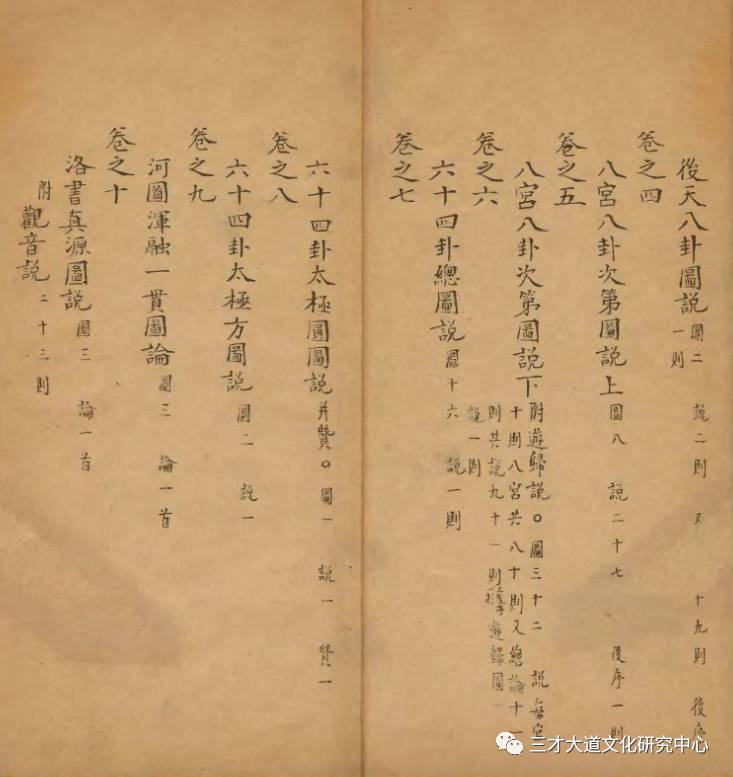 後天八卦圖說 圖二 說二則 又 十九則 後序一則
卷之四
八宮八卦次第圖說上 圖八 說二十七 後序一則
卷之五
八宮八卦次第圖說下 附遊歸說○圖三十二 說每宮
十則八宮共八十則又總論十一
則共說九十一則 遊歸圖一
說一則
卷之六
六十四卦總圖說 圖十六 說一則
卷之七
六十四卦太極圓圖說 并贊○圖一 說一 贊一
卷之八
六十四卦太極方圖說 圖二 說一
卷之九
河圖渾融一貫圖論 圖三 論一首
卷之十
洛書真源圖說 圖三 論一首
附觀音說 二十三則
三才大道文化研究中心